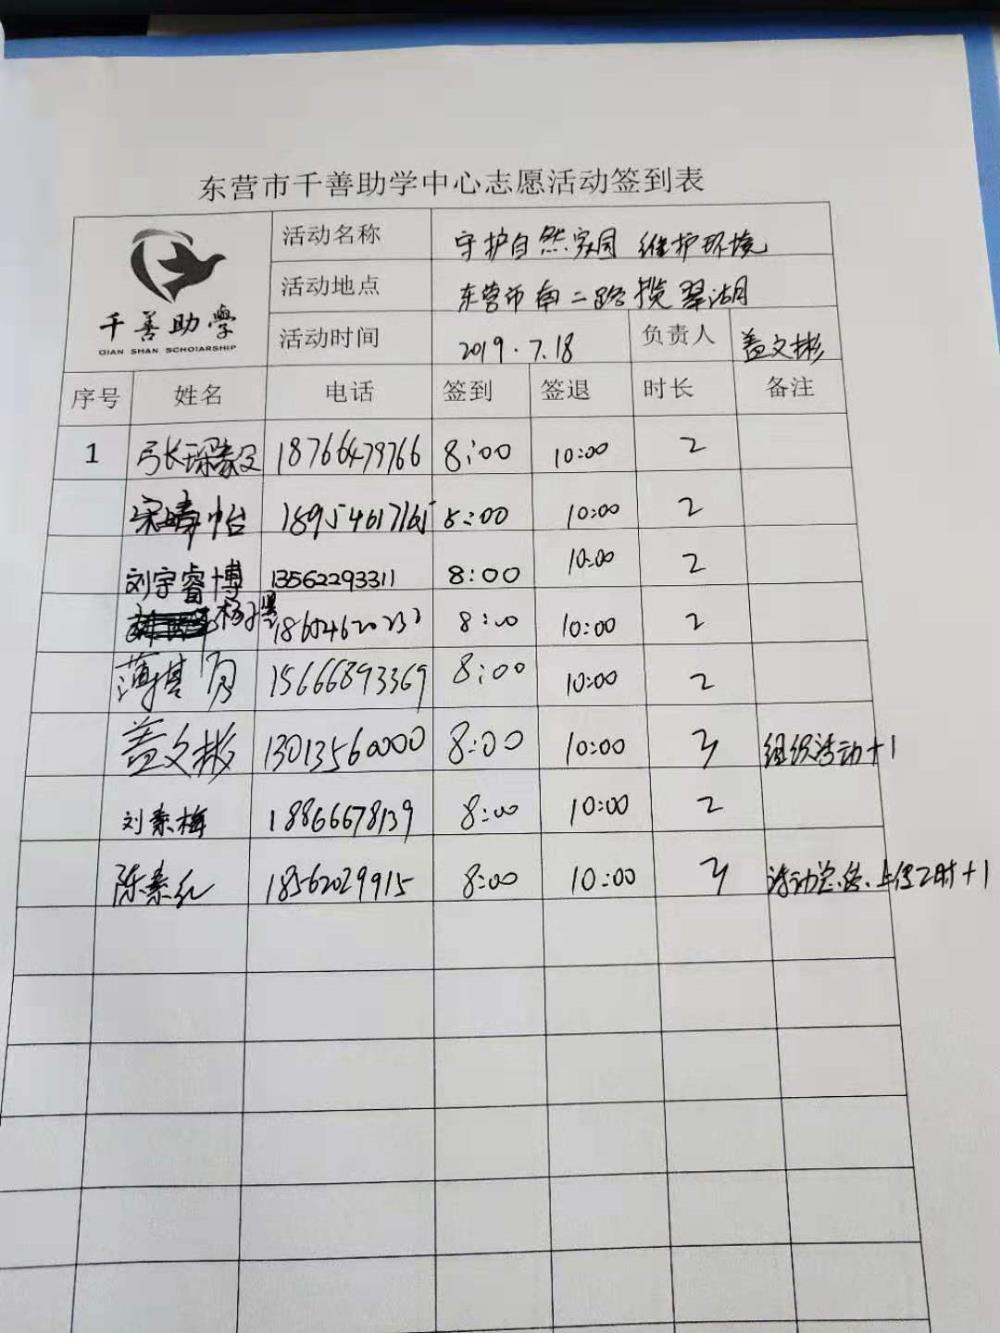 东营市千善助学中心志愿活动签到表
千善助學
QIAN SHAN SCHOIARSHIP
活动名称 守护自然家园 维护环境
活动地点 东营市南二路揽翠湖
活动时间 2019.7.18 负责人 盖文彬
序号 姓名 电话 签到 签退 时长 备注
1 18766479766 8:00 10:00 2
宋婧怡 18954617165 8:00 10:00 2
刘宇睿博 13562293311 8:00 10:00 2
8:00 10:00 2
薄其月 15666893369 8:00 10:00 2
盖文彬 13013560000 8:00 10:00 3 组织活动+1
刘素梅 18866678139 8:00 10:00 2
陈素红 18562029915 8:00 10:00 3 活动总结、上传工时+1